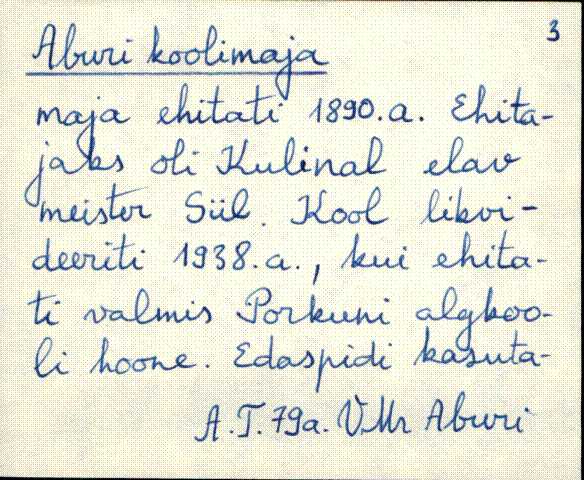 3
Aburi koolimaja
maja ehitati 1890.a. Ehita-
jaks oli Kulinal elav
meister Siil. Kool likvi-
deeriti 1938.a., kui ehita-
ti valmis Porkuni algkoo-
li hoone. Edaspidi kasuta-
A.T. 79a. VMr Aburi